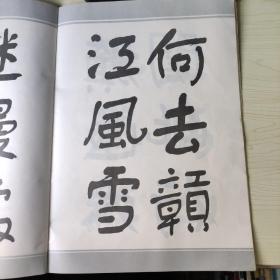 何去贛
江風雪
迷漫